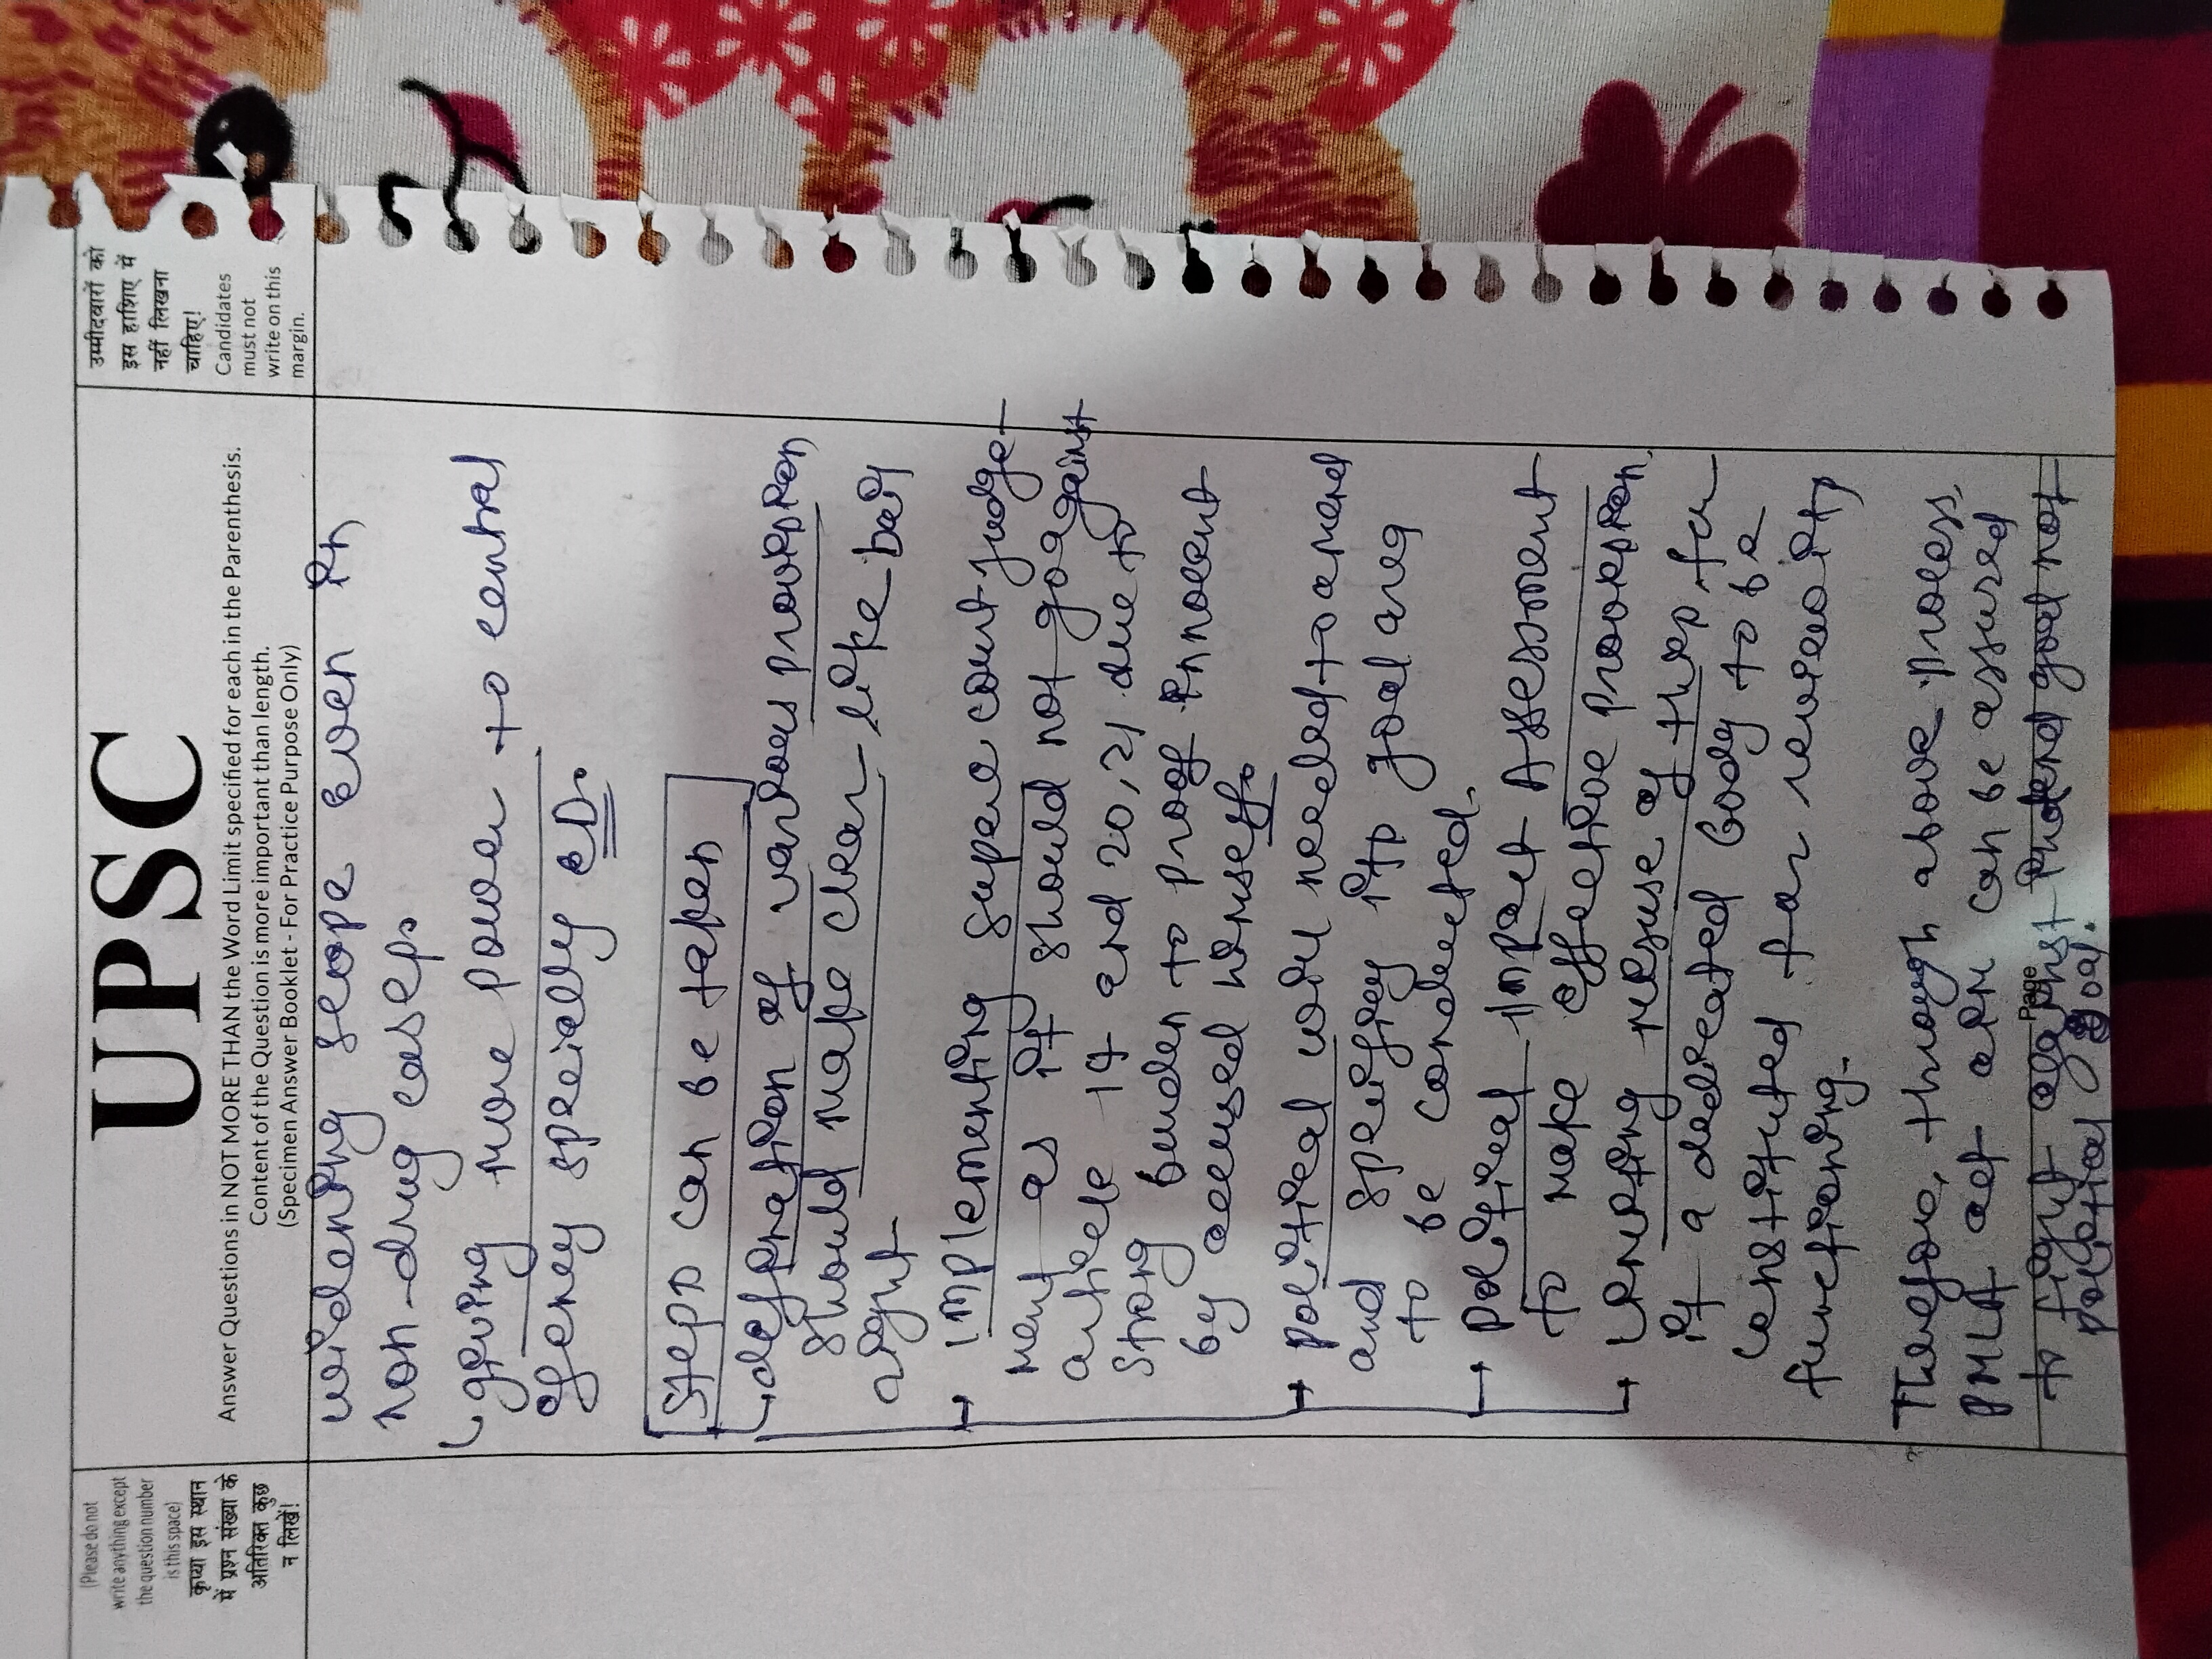 (Please do not
write anything except
the question number
is this space)
कृप्या इस स्थान
में प्रश्न संख्या के
अतिरिक्त कुछ
न लिखें!
UPSC
Answer Questions in NOT MORE THAN the Word Limit specified for each in the Parenthesis.
Content of the Question is more important than length.
(Specimen Answer Booklet - For Practice Purpose Only)
उम्मीदवारों को
इस हाशिए में
नहीं लिखना
चाहिए!
Candidates
must not
write on this
margin.
widening scope even in
non-drug cases.
giving more power to central
agency specially ED.
Steps can be taken
of various provision
should make clear like bail
right
Implementing Supreme court judge-
ment as it should not go against
article 14 and 20, 21 due to
strong burden to proof innocent
by accused himself.
political will needed to amend
and specifying its goal area
to be conducted.
political Impact Assessment
to make effective provision.
of this for
it a dedicated body to be
constituted for
functioning.
Therefore, through above process,
PMLA act aim can be assured
to fight against and not
political goal.
Page